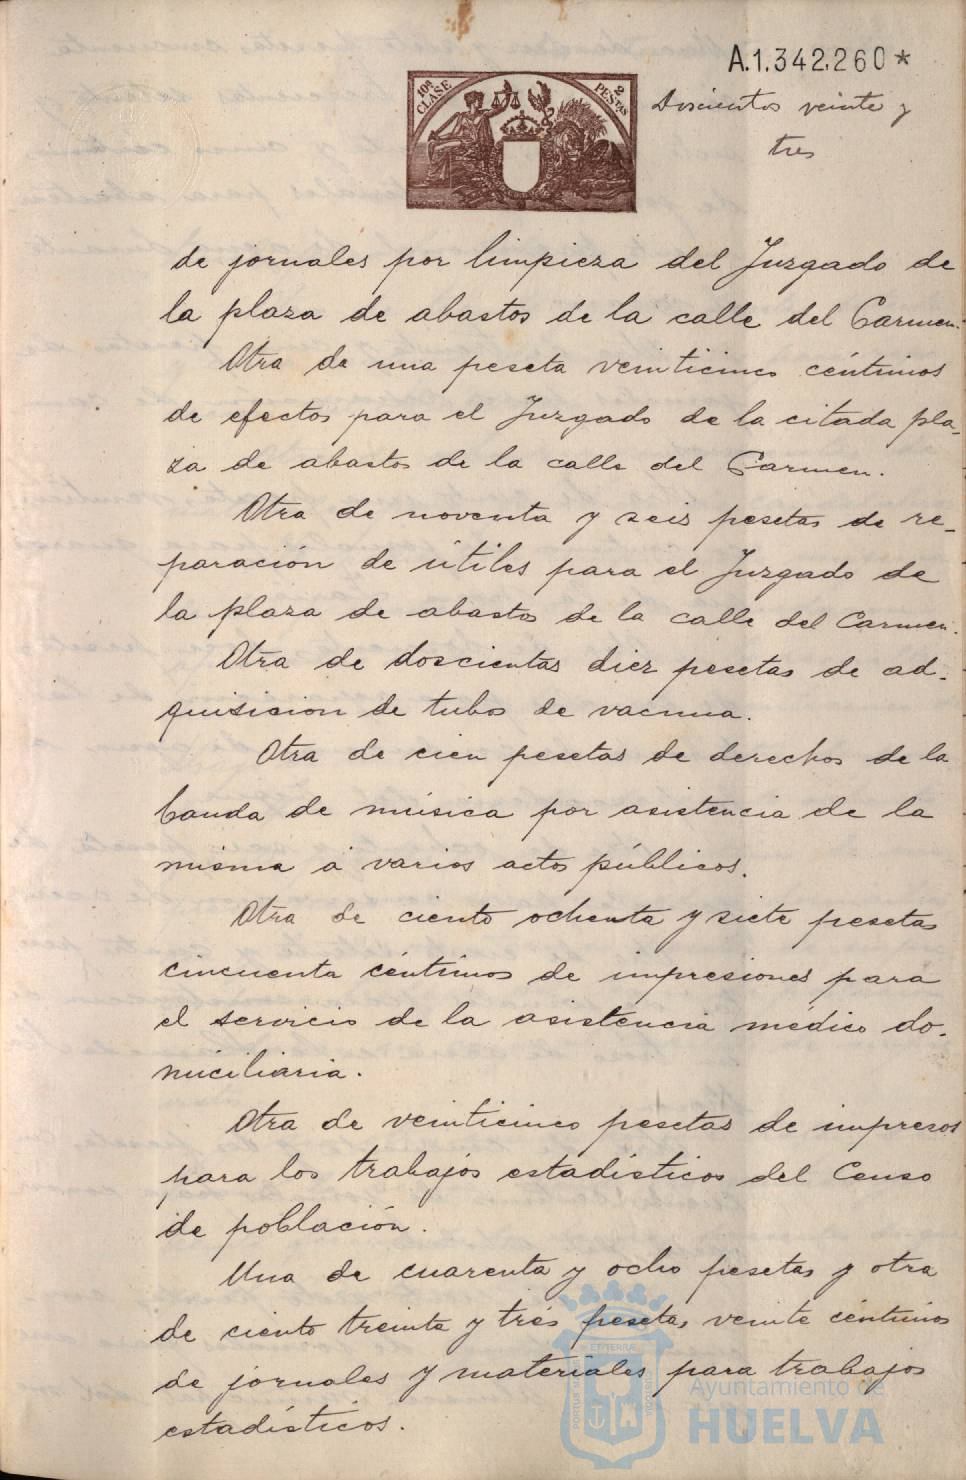 A.1.342.260*
10ª CLASE
2 PESTAS
Doscientos veinte y
tres
de jornales por limpieza del Juzgado de
la plaza de abastos de la calle del Carmen.
Otra de una peseta veinticinco céntimos
de efectos para el Juzgado de la citada pla-
za de abastos de la calle del Carmen.
Otra de noventa y seis pesetas de re-
paración de útiles para el Juzgado de
la plaza de abastos de la calle del Carmen.
Otra de doscientas diez pesetas de ad-
quisicion de tubos de vacuna.
Otra de cien pesetas de derechos de la
banda de música por asistencia de la
misma á varios actos públicos.
Otra de ciento ochenta y siete pesetas
cincuenta céntimos de impresiones para
el servicio de la asistencia médico do-
miciliaria.
Otra de veinticinco pesetas de impresos
para los trabajos estadísticos del Censo
de población.
Una de cuarenta y ocho pesetas y otra
de ciento treinta y trés pesetas veinte céntimos
de jornales y materiales para trabajos
estadísticos.
Ayuntamiento de
HUELVA